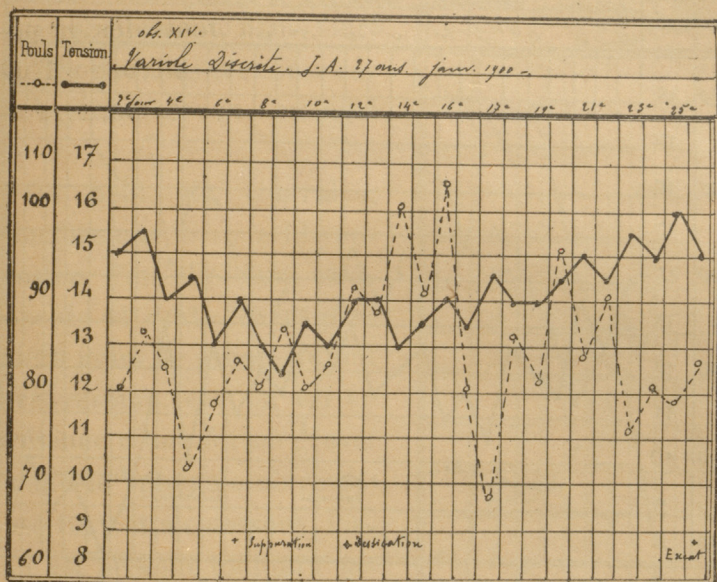 obs. XIV.
Pouls Tension
Variole Discrète. J. A. 27 ans. janv. 1900 -
2e jour 4e 6e 8e 10e 12e 14e 16e 17e 19e 21e 23e 25e
110 17
100 16
15
90 14
13
80 12
11
70 10
9
+ Suppuration + Dessication
60 8
Exeat